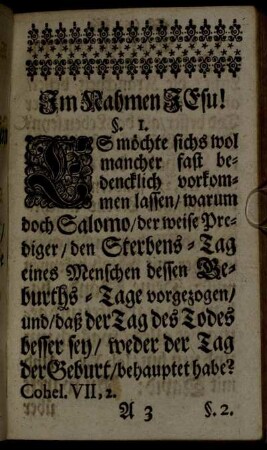 Im Nahmen JEsu!
§. 1.
ES möchte sichs wol
mancher fast be-
dencklich vorkom-
men lassen/ warum
doch Salomo/ der weise Pre-
diger/ den Sterbens-Tag
eines Menschen dessen Ge-
burths-Tage vorgezogen/
und/ daß der Tag des Todes
besser sey/ weder der Tag
der Geburt/ behauptet habe?
Cohel. VII, 2.
A 3 §. 2.